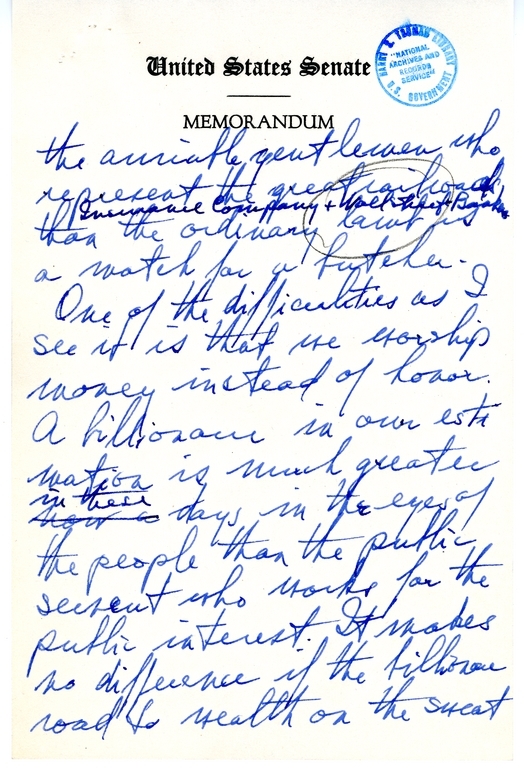 United States Senate
HARRY S. TRUMAN LIBRARY
"NATIONAL
ARCHIVES AND
RECORDS
SERVICE"
U.S. GOVERNMENT
MEMORANDUM
the amiable gentlemen who
represent the great railroads,
Insurance Company + Wall Street Bankers
than the ordinary lamb is
a match for a butcher.
One of the difficulties as I
see it is that we worship
money instead of honor.
A billionaire in our esti
mation is much greater
in these
now a days in the eyes of
the people than the public
servent who works for the
public interest. It makes
no difference if the billionaire
road to wealth on the sweat